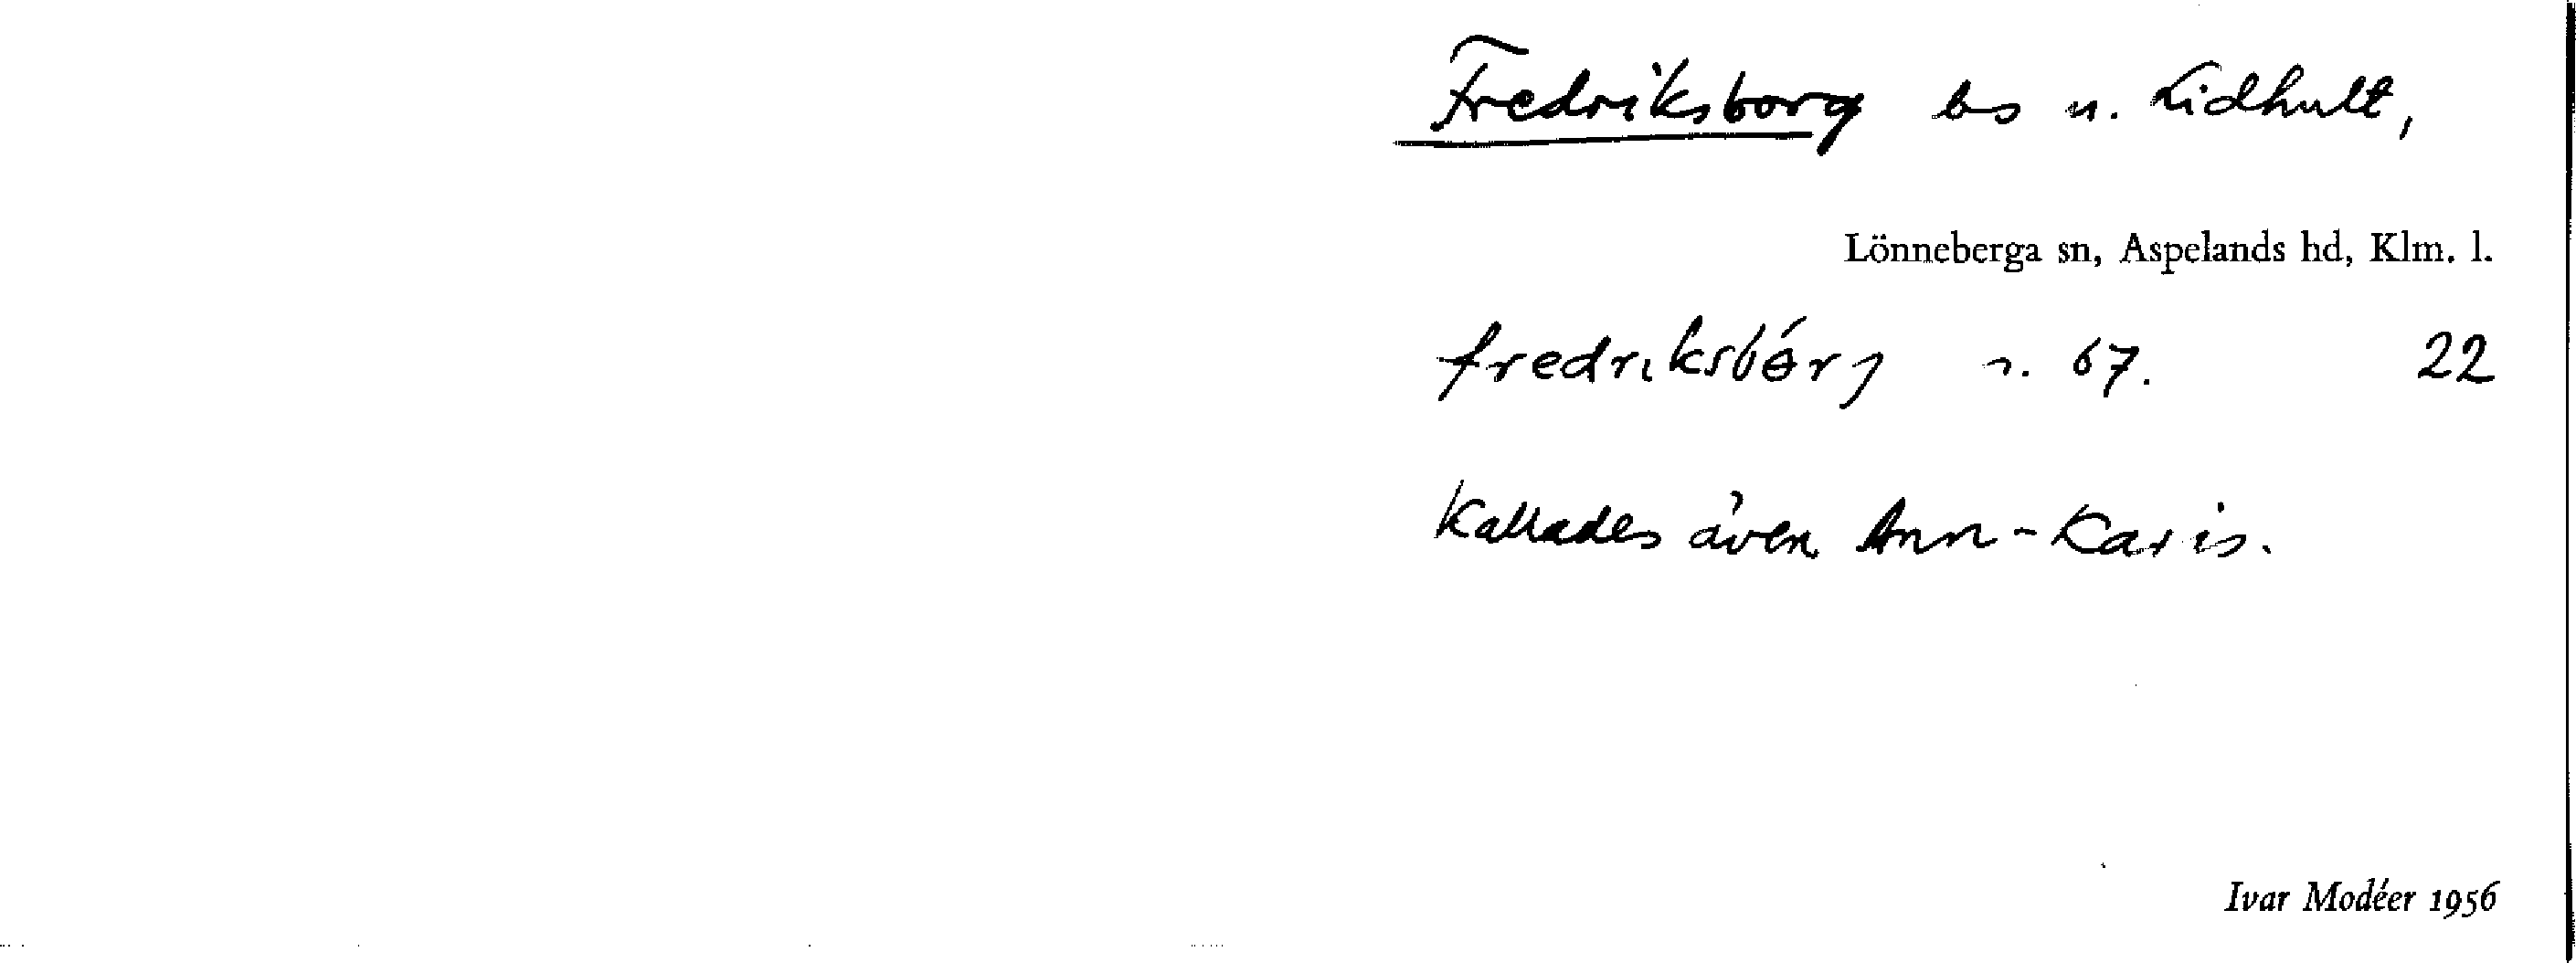 Fredriksborg bs u. Lidhult,
Lönneberga sn, Aspelands hd, Klm. l.
fredriksbórj n. 67. 22
Kallades även Ann-Karis.
Ivar Modéer 1956